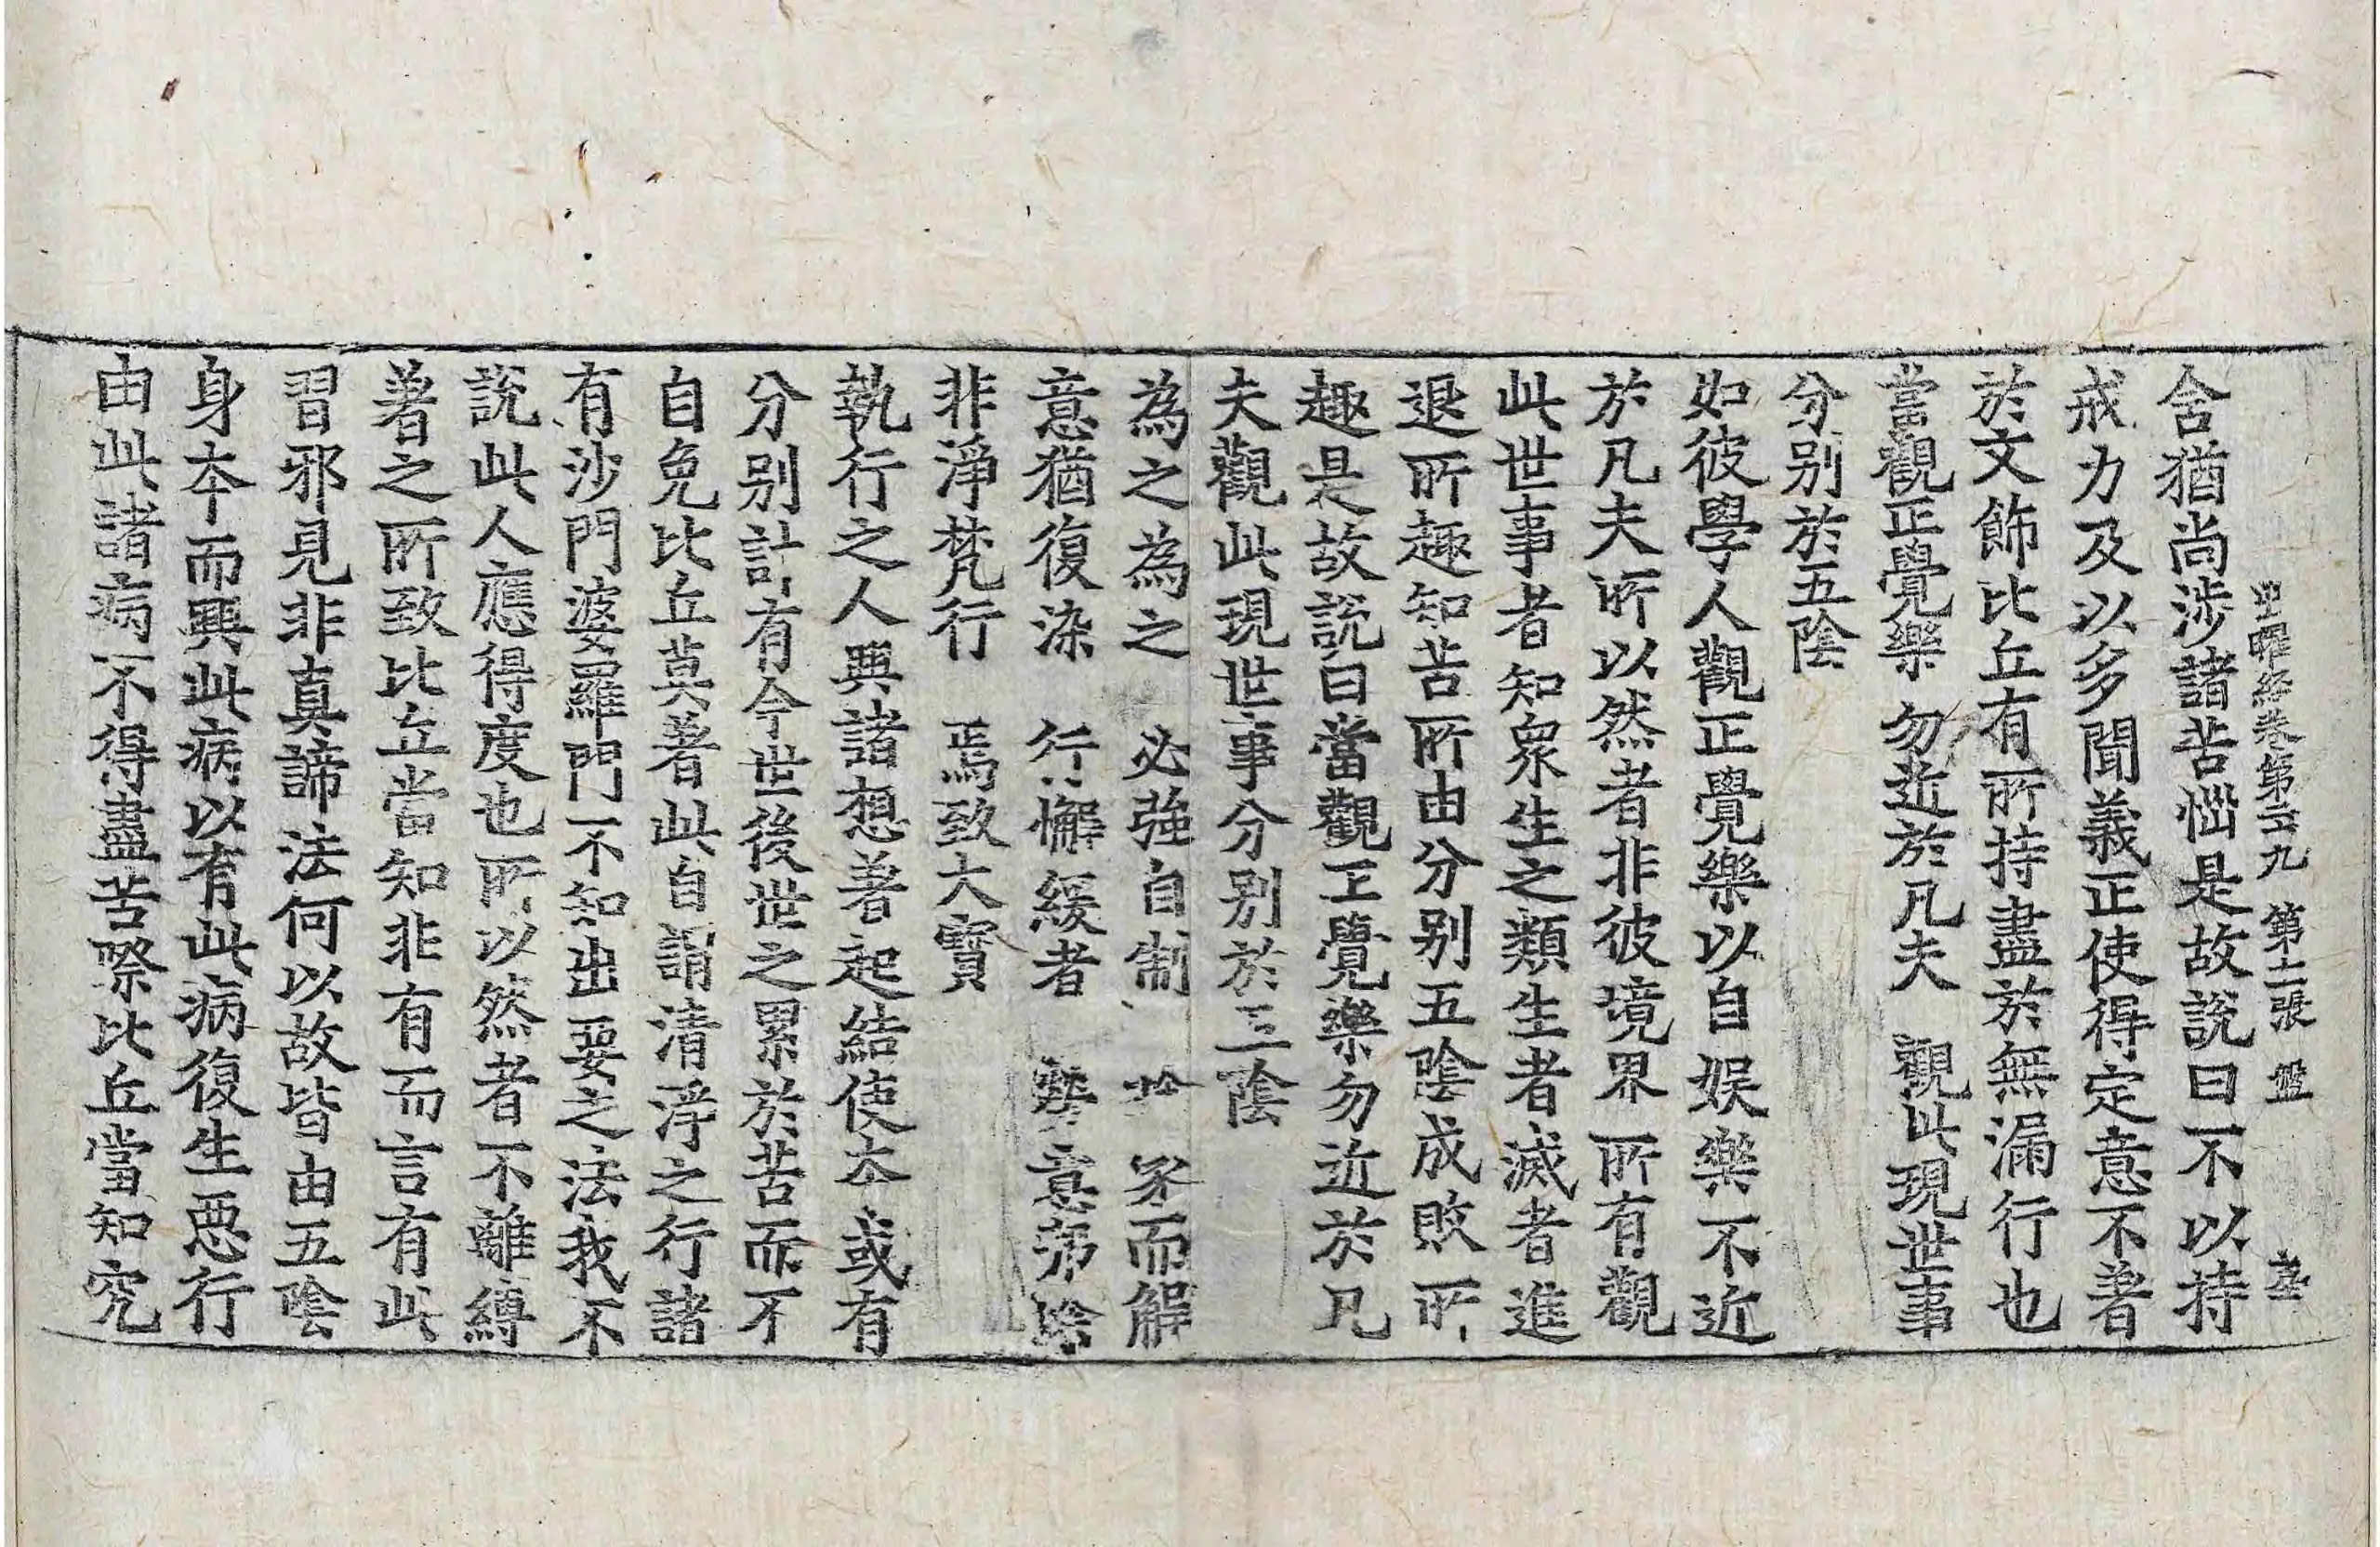 出曜経卷第二九 第十二張 盤
舎猶尚涉諸苦惱是故說曰不以持
戒力及以多聞義正使得定意不著
於文飾比丘有所持盡於無漏行也
當觀正覺樂 勿近於凡夫 觀此現世事
分別於五陰
如彼學人觀正覺樂以自娛樂不近
於凡夫所以然者非彼境界所有觀
此世事者知衆生之類生者滅者進
退所趣知苦所由分別五陰成敗所
趣是故說曰當觀正覺樂勿近於凡
夫觀此現世事分別於五陰
為之為之 必強自制 捨家而解
意猶復染 行懈緩者 勞意弗除
非淨梵行 焉致大寶
執行之人興諸想著起結使本或有
分別計有今世後世之累於苦而不
自免比丘莫著此自謂清淨之行諸
有沙門婆羅門不知出要之法我不
說此人應得度也所以然者不離縛
著之所致比丘當知非有而言有此
習邪見非真諦法何以故皆由五陰
身本而興此病以有此病復生惡行
由此諸病不得盡苦際比丘當知究